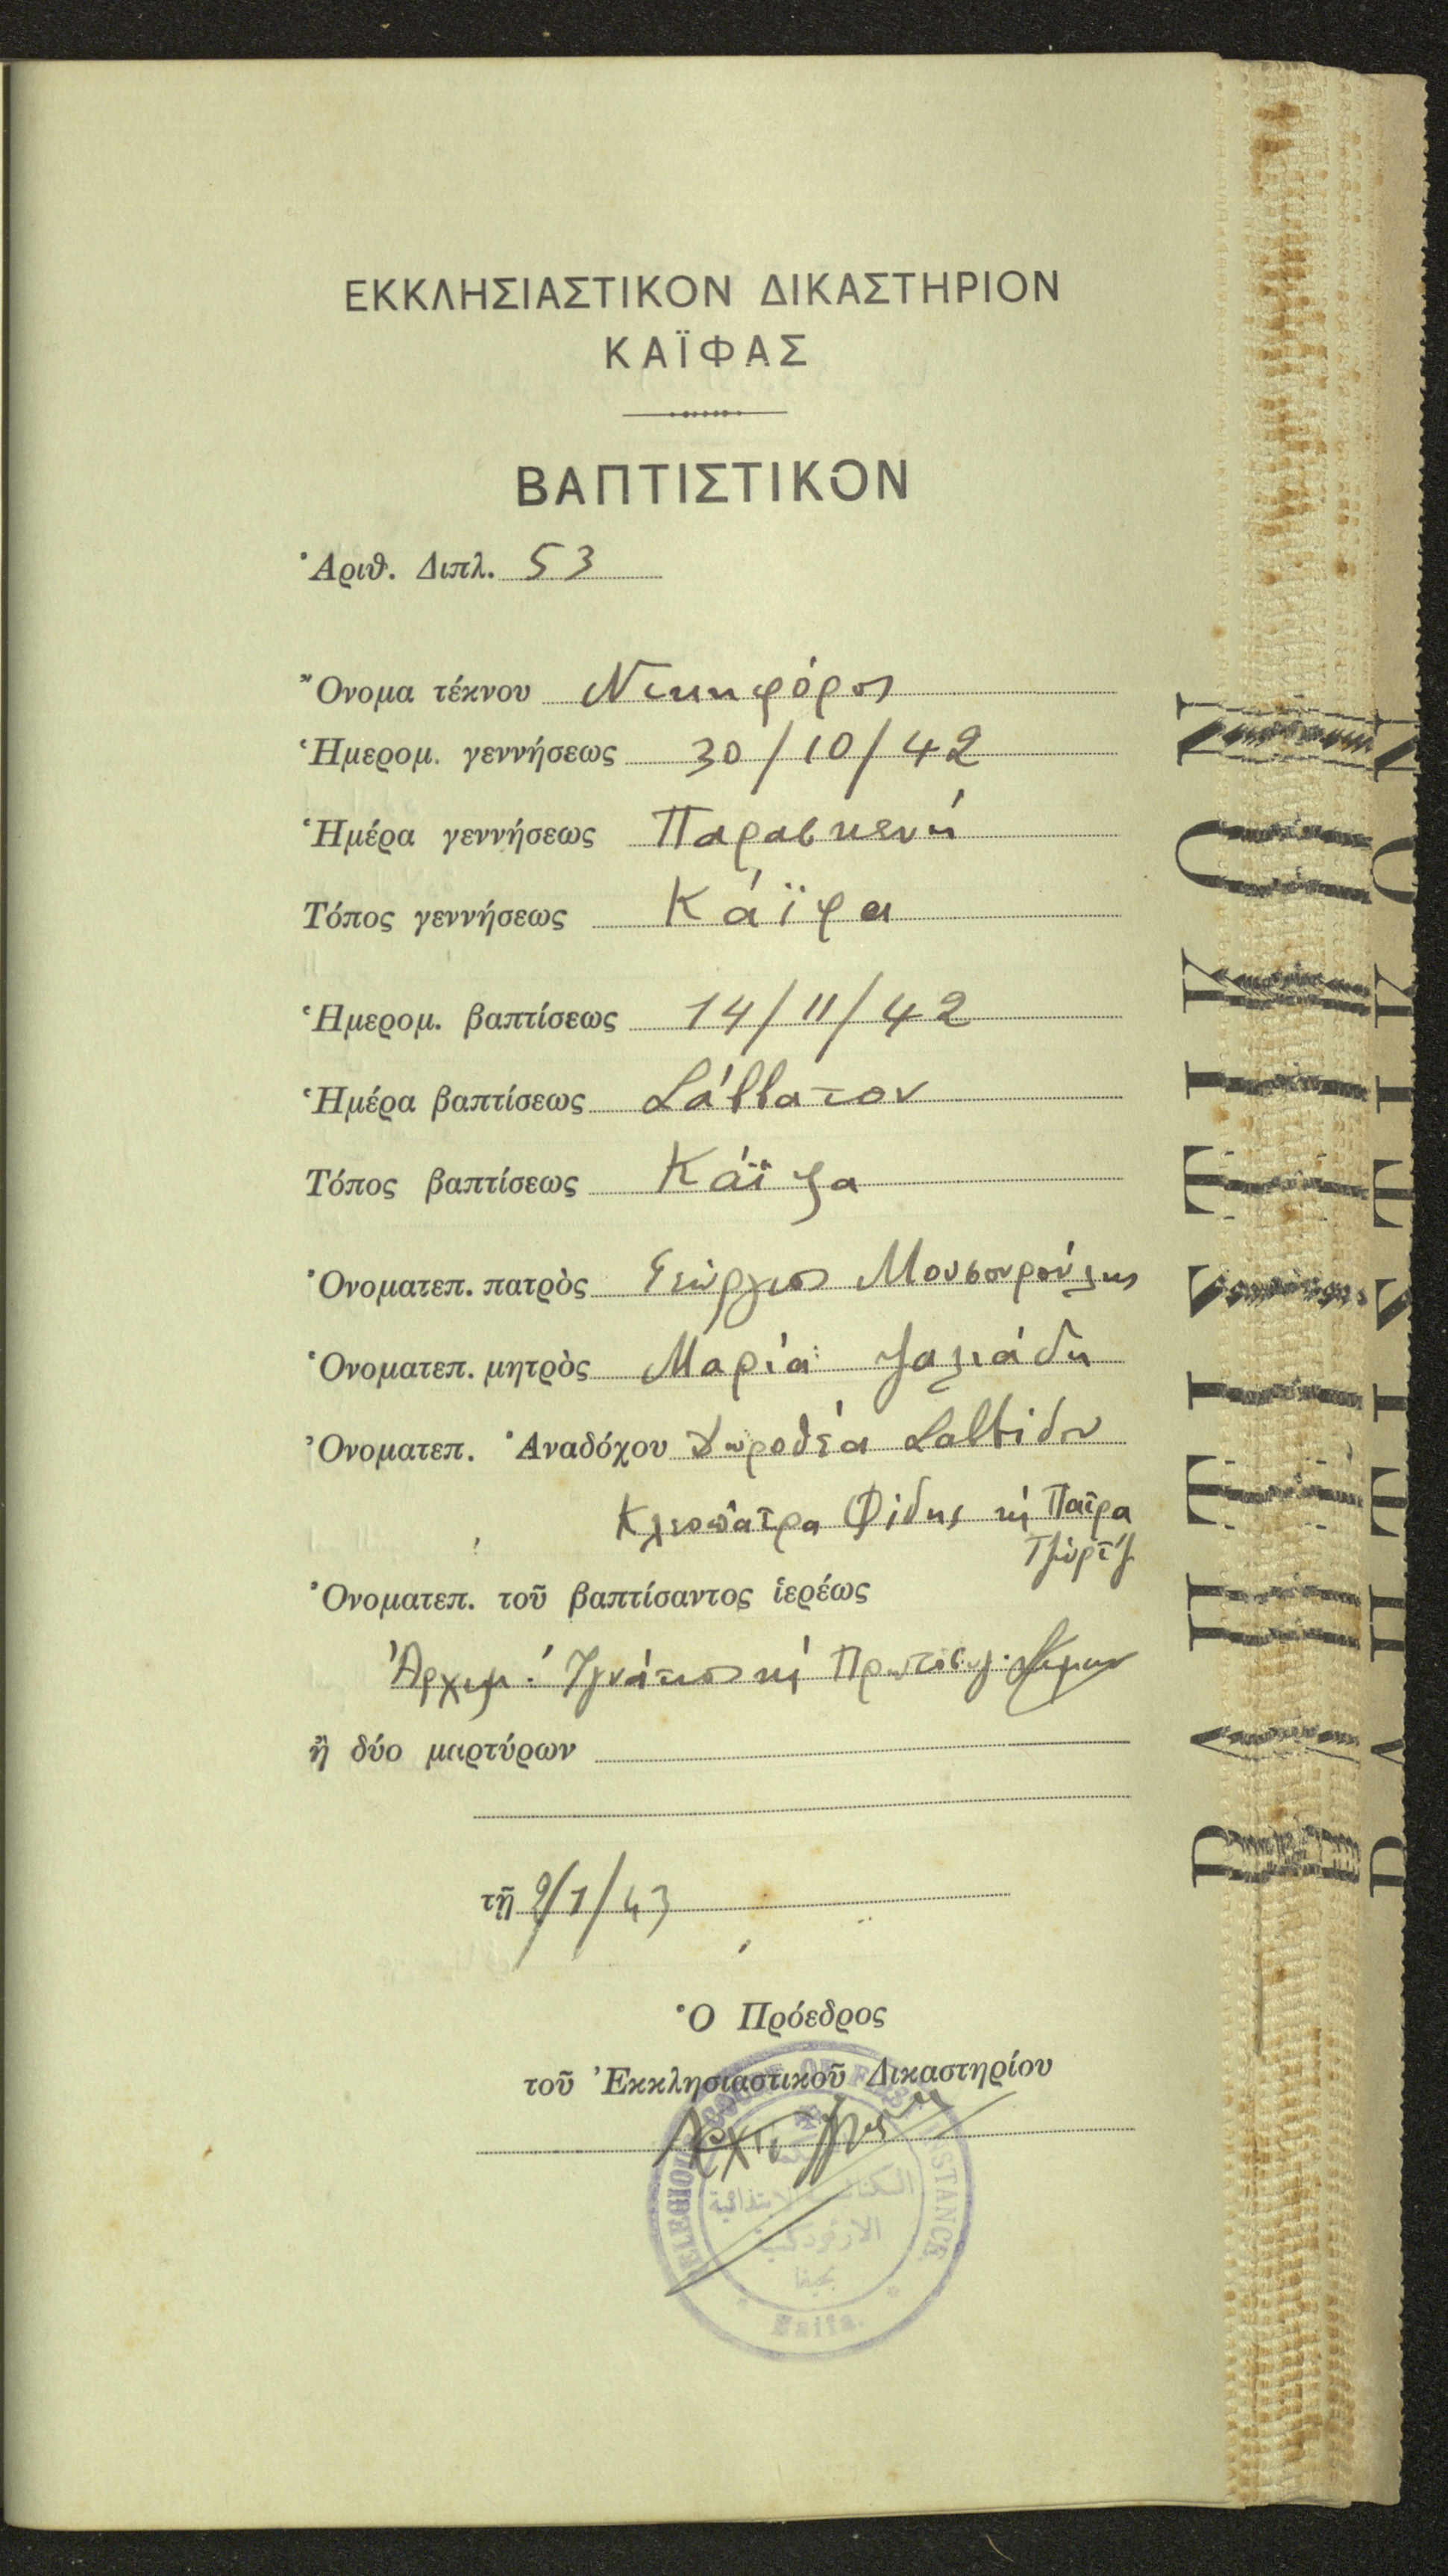 ΕΚΚΛΗΣΙΑΣΤΙΚΟΝ ΔΙΚΑΣΤΗΡΙΟΝ
ΚΑΪΦΑΣ
ΒΑΠΤΙΣΤΙΚΟΝ
Ἀριθ. Διπλ. 53
Ὄνομα τέκνου Νικηφόρος
Ἡμερομ. γεννήσεως 30/10/42
Ἡμέρα γεννήσεως Παρασκευή
Τόπος γεννήσεως Κάϊφα
Ἡμερομ. βαπτίσεως 14/11/42
Ἡμέρα βαπτίσεως Σάββατον
Τόπος βαπτίσεως Κάϊφα
Ὀνοματεπ. πατρὸς Γεώργιος Μουσουρούλης
Ὀνοματεπ. μητρὸς Μαρία Ψαλιάδη
Ὀνοματεπ. Ἀναδόχου Δωροθέα Σαββίδου
Κλεοπάτρα Φίδης κὴ Πάτρα
Τζώρτζ
Ὀνοματεπ. τοῦ βαπτίσαντος ἱερέως
Ἀρχιμ. Ἰγνάτιος κὴ
ἢ δύο μαρτύρων
τῇ 9/1/43
Ὁ Πρόεδρος
τοῦ Ἐκκλησιαστικοῦ Δικαστηρίου
INSTANCE
الارثوذكسية
بحيفا
Haifa.
ΒΑΠΤΙΣΤΙΚΟΝ
ΒΑΠΤΙΣΤΙΚΟΝ